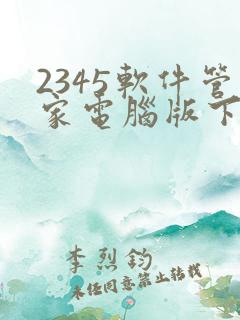 2345軟件管
家電腦版下
李烈鈞
未经同意禁止转载